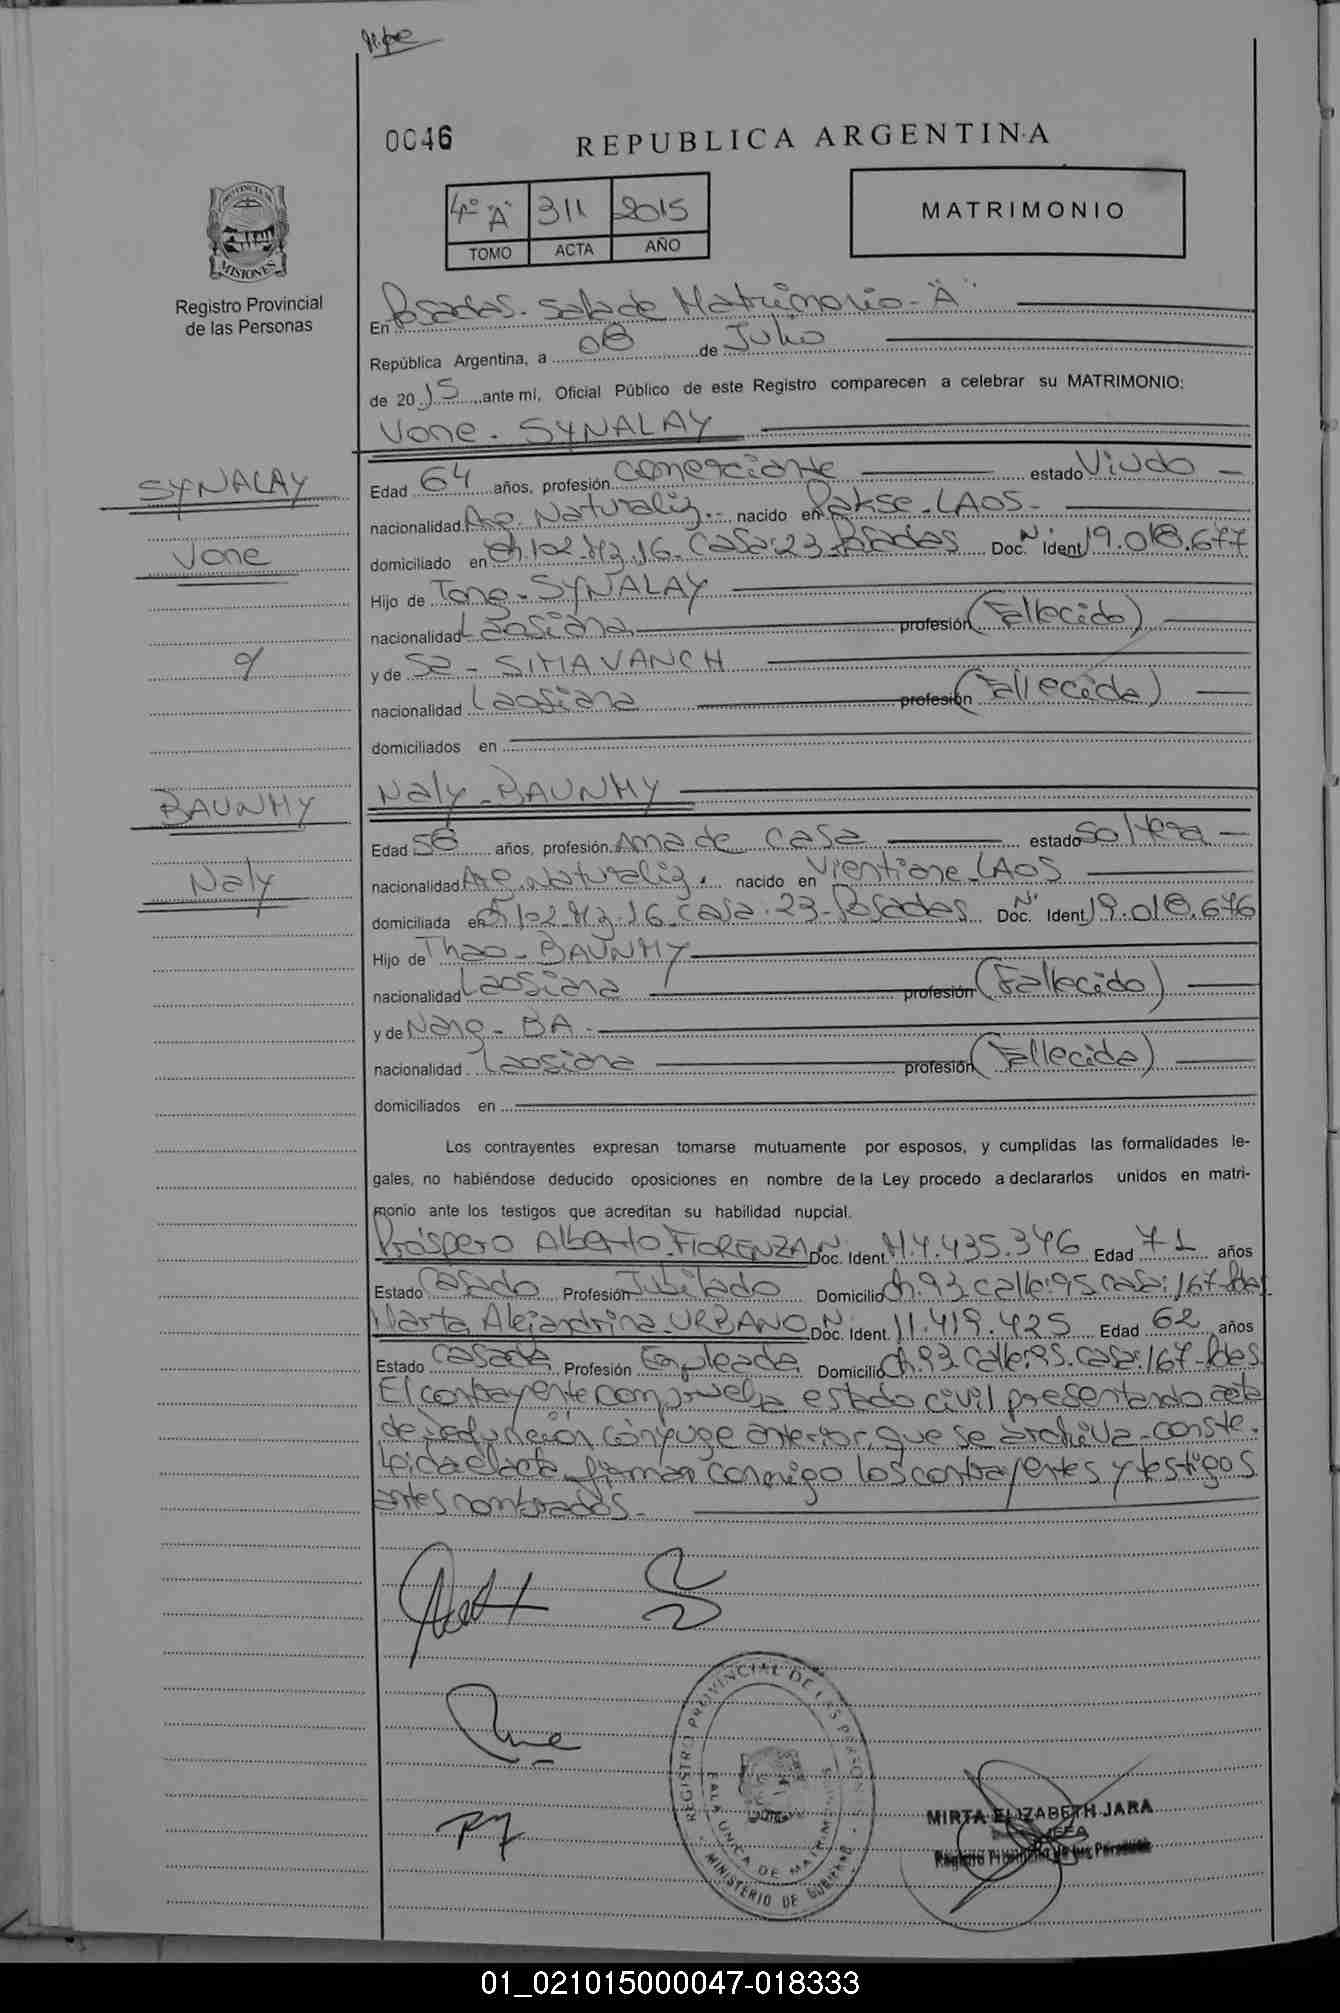 0046
REPUBLICA ARGENTINA
4º "A" 311 2015
TOMO ACTA AÑO
MATRIMONIO
PROVINCIA DE MISIONES
Registro Provincial
de las Personas
En Posadas - Sala de Matrimonio - "A"
República Argentina, a 08 de Julio
de 2015 ante mi, Oficial Público de este Registro comparecen a celebrar su MATRIMONIO:
Vone - SYNALAY
SYNALAY
Vone
y
BAUNMY
Naly
Edad 64 años, profesión Comerciante estado Viudo
nacionalidad Arg. Naturaliz. nacido en Pakse - LAOS -
domiciliado en Ch. 102 - Mz. 16 - Casa: 23 - Posadas Doc. Nº Ident. 19.018.677
Hijo de Tong - SYNALAY
nacionalidad Laosiana profesión (Fallecido)
y de Sa - SIMAVANCH
nacionalidad Laosiana profesión (Fallecida)
domiciliados en
Naly - BAUNMY
Edad 58 años, profesión Ama de Casa estado Soltera
nacionalidad Arg. Naturaliz. nacido en Vientiane - LAOS
domiciliada en Ch. 102 - Mz. 16 - Casa: 23 - Posadas Doc. Nº Ident. 19.018.676
Hijo de Thao - BAUNMY
nacionalidad Laosiana profesión (Fallecido)
y de Nang - BA -
nacionalidad Laosiana profesión (Fallecida)
domiciliados en
Los contrayentes expresan tomarse mutuamente por esposos, y cumplidas las formalidades le-
gales, no habiéndose deducido oposiciones en nombre de la Ley procedo a declararlos unidos en matri-
monio ante los testigos que acreditan su habilidad nupcial.
Próspero Alberto FIORENZA Doc. Nº Ident. M.7.435.346 Edad 71 años
Estado Casado Profesión Jubilado Domicilio Ch. 93 - calle: 95 casa: 167 - Pdas
Marta Alejandrina - URBANO Doc. Nº Ident. 11.419.425 Edad 62 años
Estado Casada Profesión Empleada Domicilio Ch. 93 - calle: 95 - casa: 167 - Pdas
El contrayente comprueba estado civil presentando acta
de defunción cónyuge anterior, que se archiva - conste.
Leida el acta firman conmigo los contrayentes y testigos
antes nombrados -
REGISTRO PROVINCIAL DE LAS PERSONAS
SALA UNICA DE MATRIMONIOS
MINISTERIO DE GOBIERNO
MIRTA ELIZABETH JARA
JEFA
Registro Provincial de las Personas
01_021015000047-018333